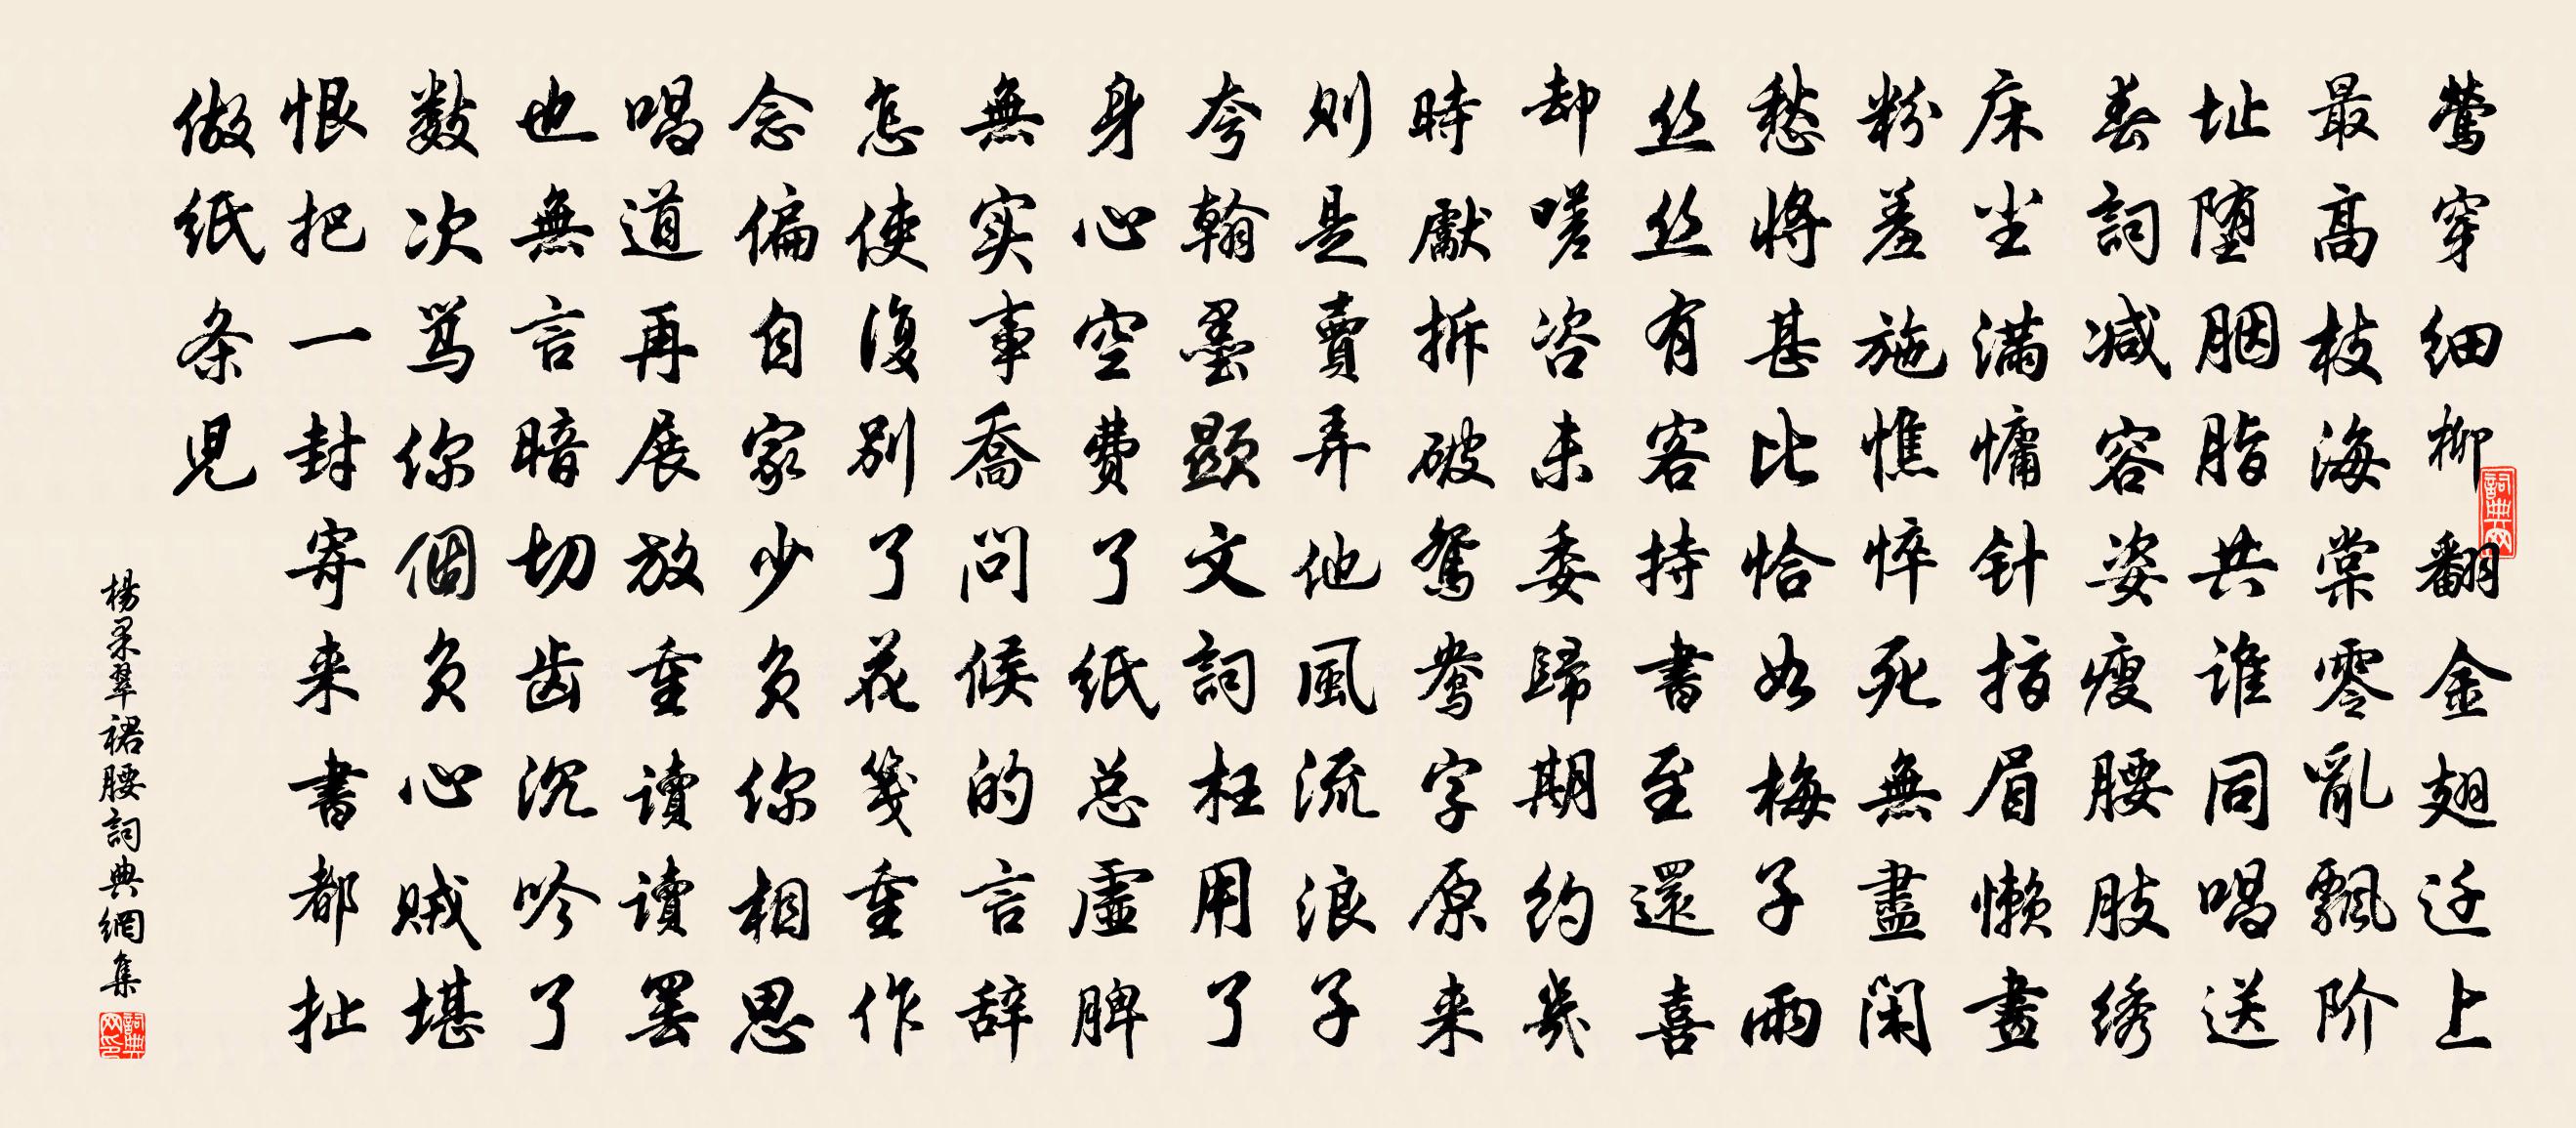 鶯穿细柳翻金翅迁上
最高枝海棠零亂飄阶
址堕胭脂共谁同唱送
春詞减容姿瘦腰肢绣
床尘满慵针指眉懒畫
粉羞施憔悴死無盡闲
愁將甚比恰如梅子雨
丝丝有客持書至還喜
却嗟咨未委歸期约幾
時獻拆破鴛鴦字原来
则是賣弄他風流浪子
夸翰墨顕文詞枉用了
身心空费了纸总虛脾
無实事喬问候的言辞
怎使復别了花笺重作
念偏自家少负你相思
唱道再展放重读读罢
也無言暗切齿沉吟了
数次骂你個负心贼堪
恨把一封寄来書都扯
做纸条児
楊果翠裙腰詞典網集
詞典网
詞典网